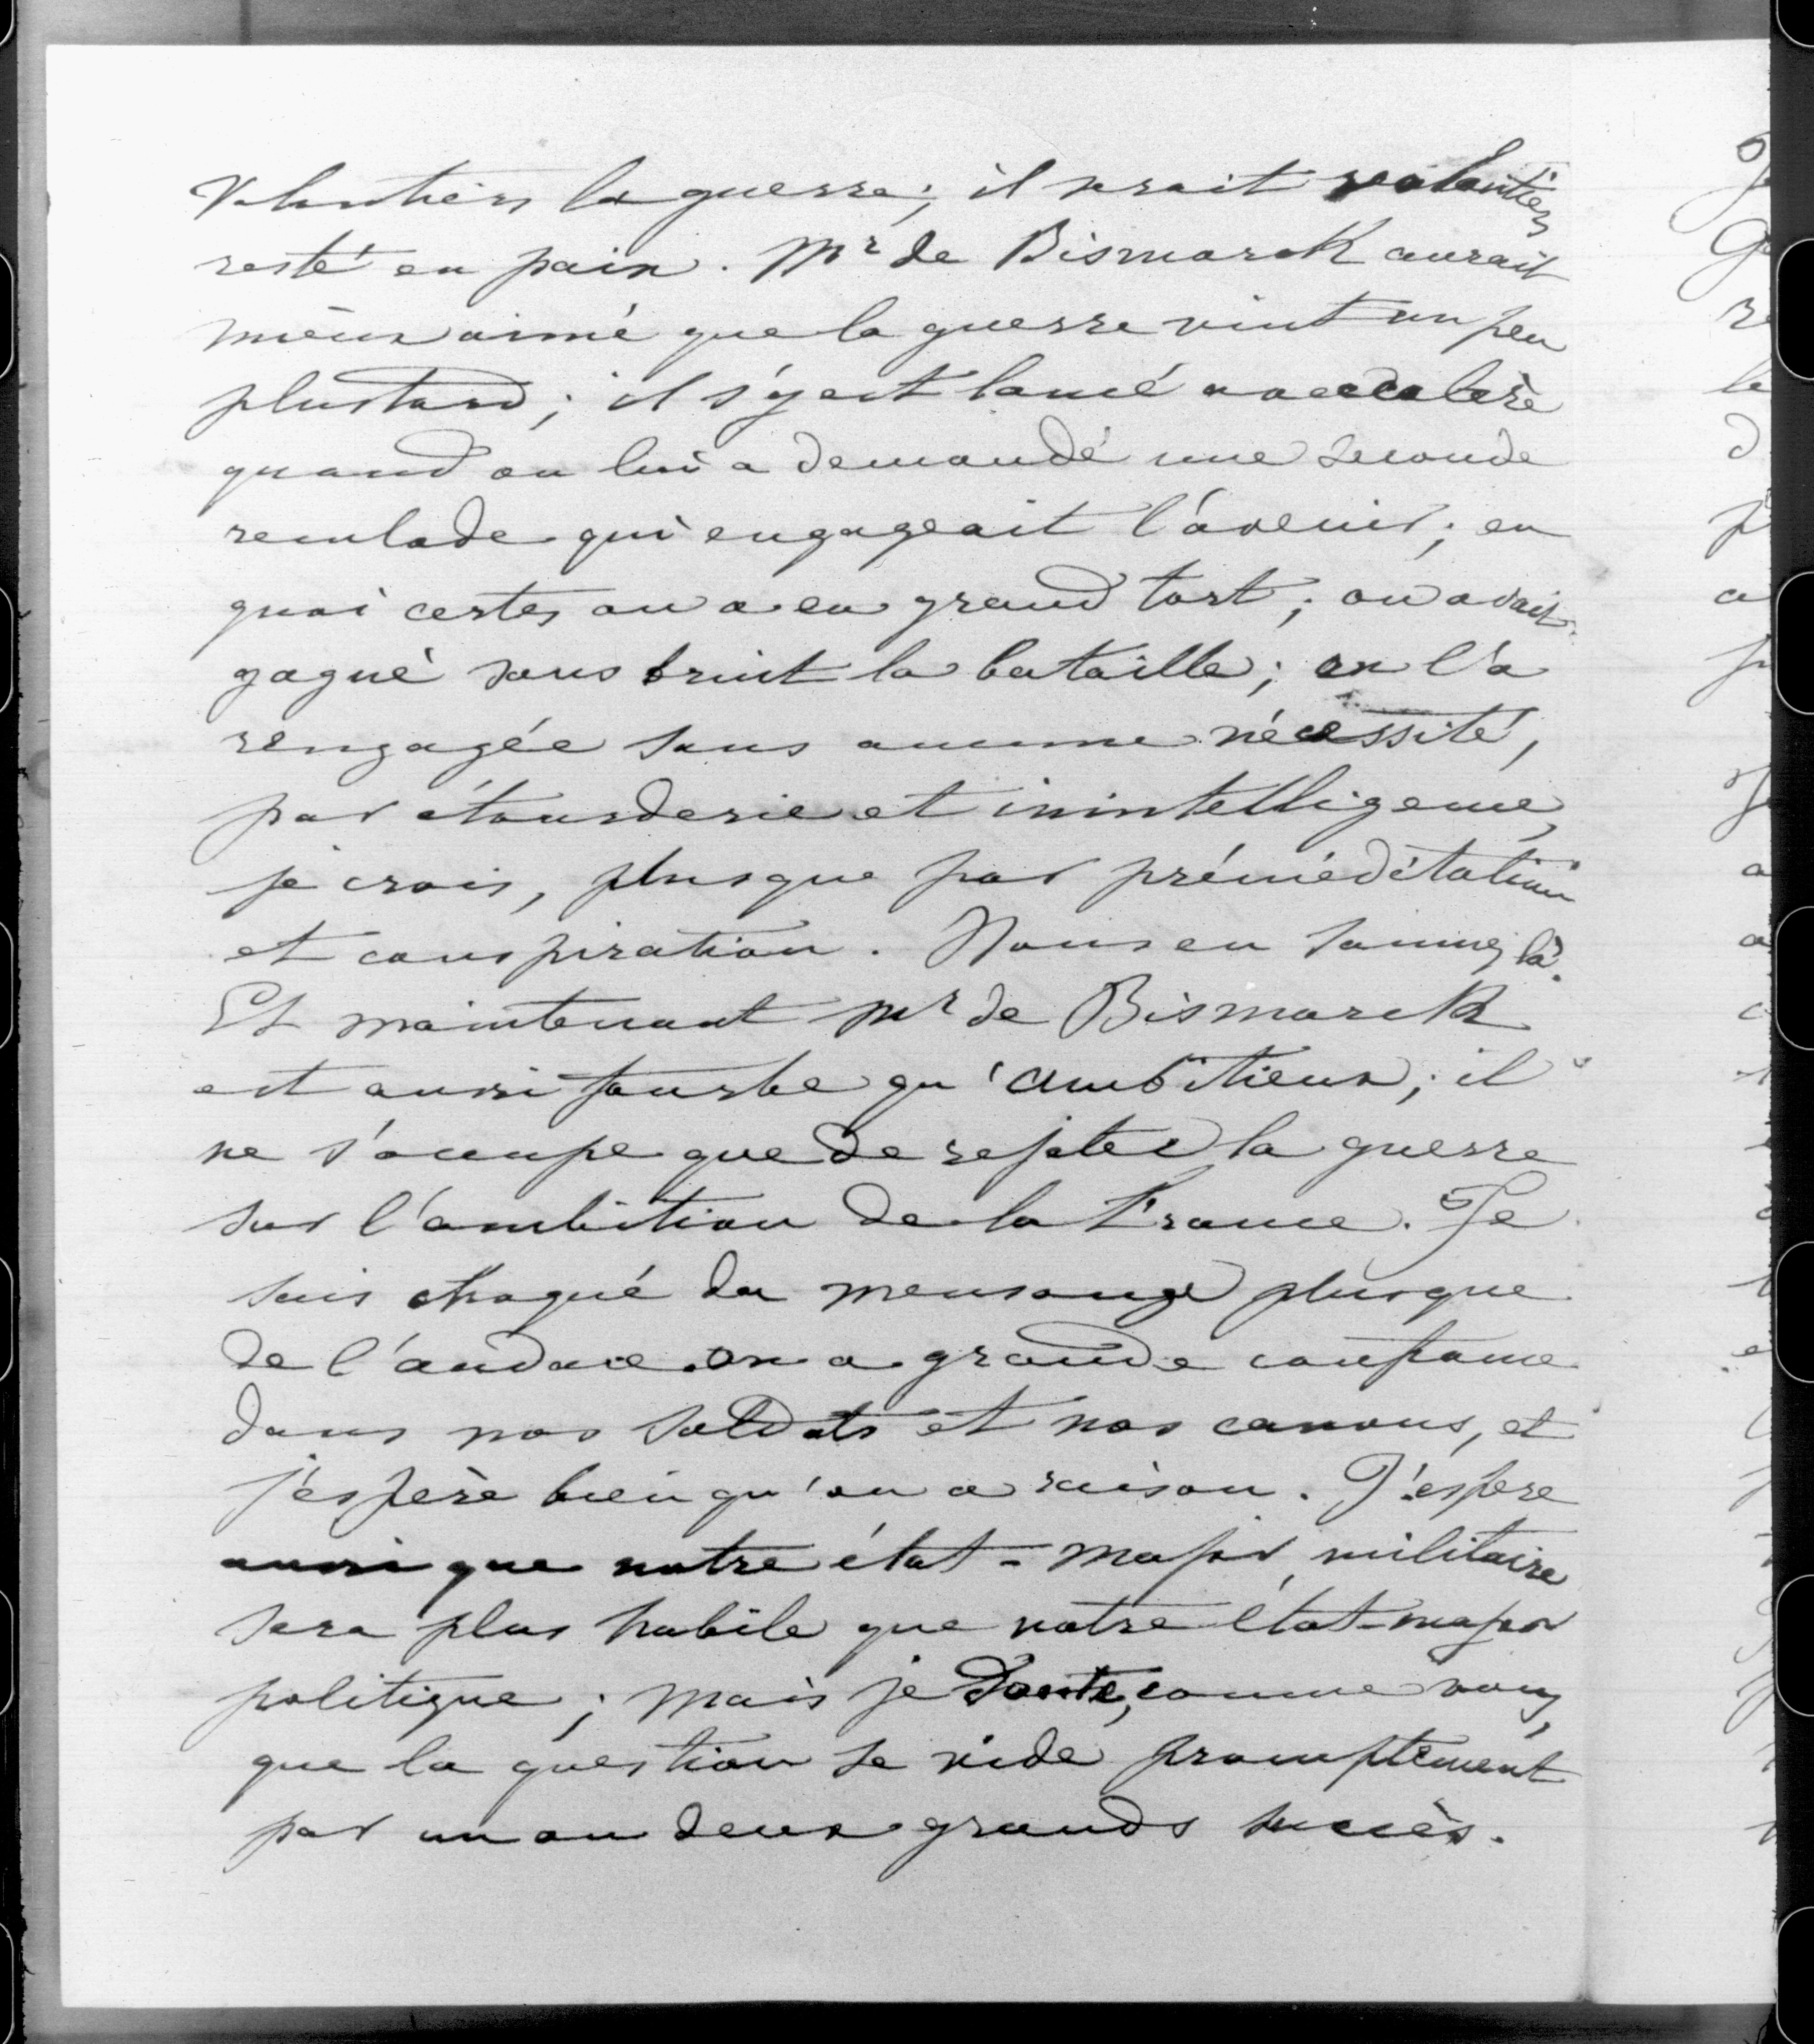 Volontiers la guerre; il serait volontiers
resté en paix. Mr de Bismarck aurait
mieux aimé que la guerre vint un peu
plustard; il s'y est lancé avec colère
quand on lui a demandé une seconde
reculade qui engageait l'avenir; en
quoi certes on a eu grand tort; on avait
gagné sans bruit la bataille; on l'a
rengagée sans aucune nécessité,
par étourderie et inintelligence,
je crois, plus que par préméditation
et conspiration. Nous en sommes là.
Et maintenant Mr de Bismarck
est aussi fourbe qu'ambitieux; il
ne s'occupe que de rejeter la guerre
sur l'ambition de la France. Je
suis choqué du mensonge plus que
de l'audace. On a grande confiance
dans nos soldats et nos canons, et
j'espère bien qu'on a raison. J'espere
aussi que notre état-major militaire
sera plus habile que notre état-major
politique; mais je doute, comme vous,
que la question se vide promptement
par un ou deux grands succès.